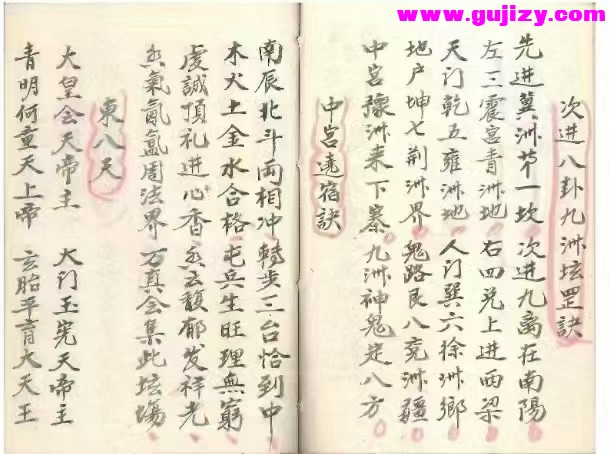 www.gujizy.com
次进八卦九洲坛罡訣
先进冀洲节一坎 次进九离在南陽
左三震宫青洲地 右四兑上进西梁
天门乾五雍洲地 人门巽六徐洲鄉
地户坤七荆洲界 鬼路艮八兖洲疆
中宫豫洲来下寨 九洲神鬼定八方
中宫遶宿訣
南辰北斗両相冲 轉步三台恰到中
木火土金水合格 屯兵生旺理無窮
虔誠頂礼进心香 云馥郁发祥光
氣氤氲周法界 万真会集此坛場
東八天
大皇会天帝主 大门玉完天帝主
青明何重天上帝 玄胎平育大天王